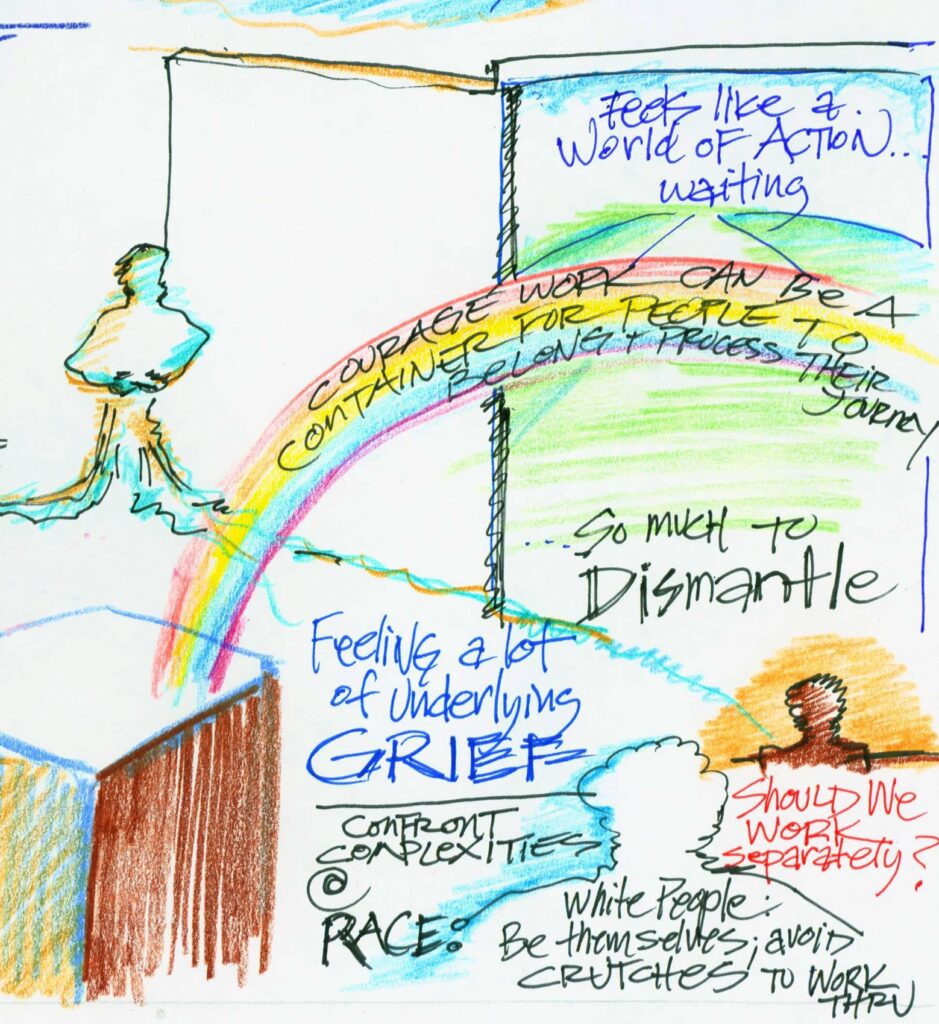 Feels like a
World of ACTION...
waiting
COURAGE WORK CAN Be A
CONTAINER FOR PEOPLE TO
BELONG + PROCESS THEIR
JOURNEY
....So MUCH TO
Dismantle
Feeling a lot
of underlying
GRIEF
CONFRONT
COMPLEXITIES
@
RACE:
SHOULD We
WORK
Separately?
White People:
Be themselves; avoid
CRUTCHES TO WORK
THRU